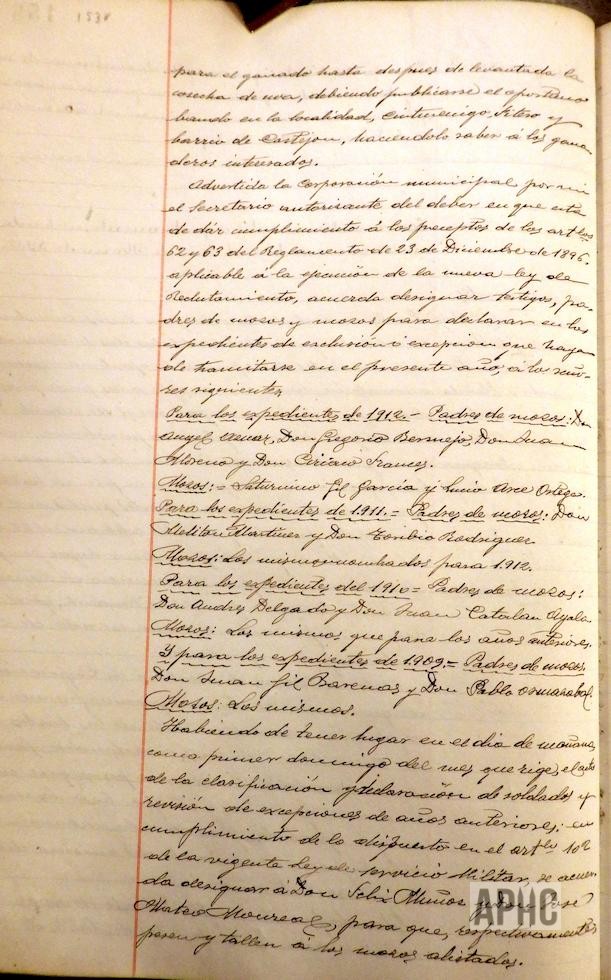 para el ganado hasta despues de levantada la
cosecha de uva, debiendo publicarse el oportuno
bando en la localidad, Cintruenigo, Fitero y
barrio de Castejon, haciendolo saber á los gana
deros interesados.
Advertida la Corporación municipal por mi
el Secretario autorizante del deber en que está
de dár cumplimiento á los preceptos de los artlos
62 y 63 del Reglamento de 23 de Diciembre de 1896.
aplicable á la ejecución de la nueva ley de
Reclutamiento, acuerda designar testigos, pa-
dres de mozos y mozos para declarar en los
expedientes de exclusión ó excepcion que hayan
de tramitarse en el presente año, á los seño-
res siguientes
Para los expedientes de 1912 - Padres de mozos: Don
Angel Aznar, Don Gregorio Bermejo, Don Juan
Moreno y Don Ciriaco Frances.
Mozos: = Saturnino Gil Garcia y Lucio Arce Ortega.
Para los expedientes de 1911. = Padres de mozos: Don
Meliton Martinez y Don Toribio Rodriguez
Mozos: Los mismos nombrados para 1912.
Para los expedientes del 1910 = Padres de mozos:
Don Andres Delgado y Don Juan Catalan Ayala
Mozos: Los mismos que para los años anteriores.
Y para los expedientes de 1909. = Padres de mozos
Don Juan Gil Barenas y Don Pablo
Mozos: Los mismos.
Habiendo de tener lugar en el dia de mañana,
como primer domingo del mes que rige, el acto
de la clasificación y declaración de soldados y
revisión de excepciones de años anteriores; en
cumplimiento de lo dispuesto en el artlo 102
de la vigente Ley de servicio Militar, se acuer
da designar á Don Felix Muñoz y Don José
Mateo Monreal, para que, respectivamente
pesen y tallen á los mozos alistados.
APHC